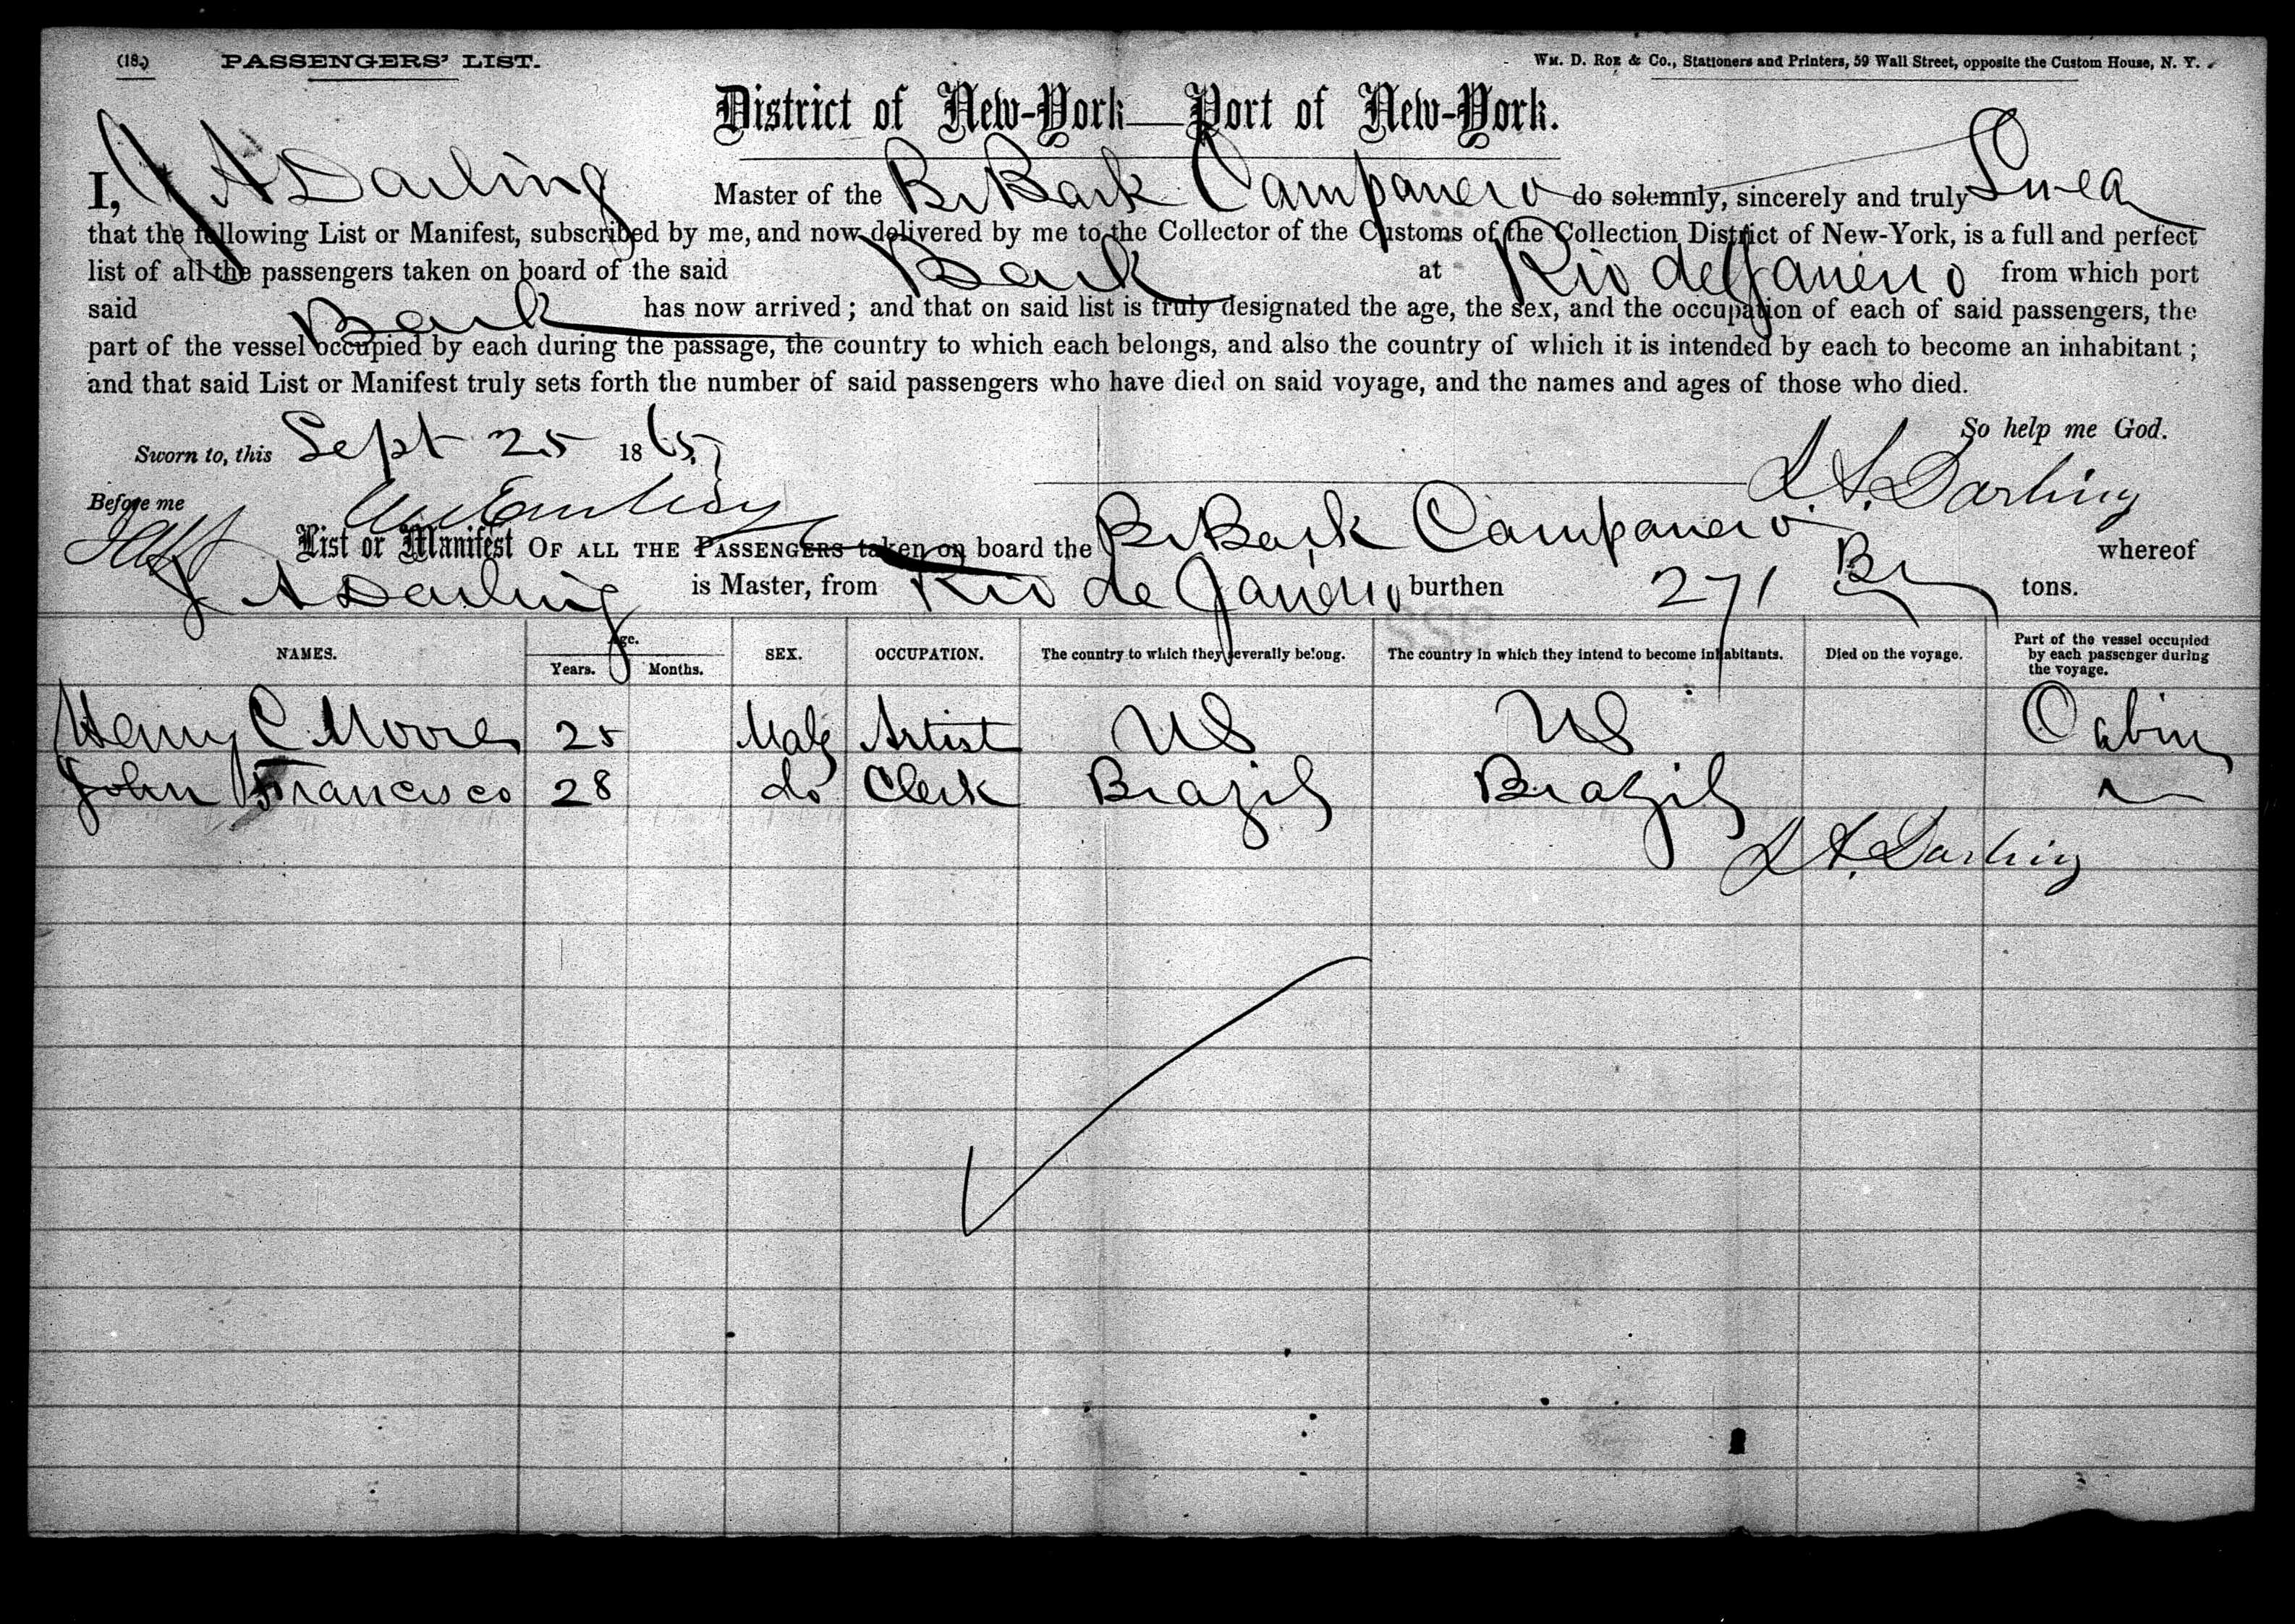 (18.) PASSENGERS' LIST. Wm. D. Roe & Co., Stationers and Printers, 59 Wall Street, opposite the Custom House, N. Y.
District of New-York—Port of New-York.
I, J A Darling Master of the Br Bark Campanero do solemnly, sincerely and truly Swea
that the following List or Manifest, subscribed by me, and now delivered by me to the Collector of the Customs of the Collection District of New-York, is a full and perfect
list of all the passengers taken on board of the said Bark at Rio de Janeiro from which port
said Bark has now arrived; and that on said list is truly designated the age, the sex, and the occupation of each of said passengers, the
part of the vessel occupied by each during the passage, the country to which each belongs, and also the country of which it is intended by each to become an inhabitant;
and that said List or Manifest truly sets forth the number of said passengers who have died on said voyage, and the names and ages of those who died.
So help me God.
Sworn to, this Sept 25 1865
D. A. Darling
Before me
List or Manifest OF ALL THE PASSENGERS taken on board the Br Bark Campanero whereof
J A Darling is Master, from Rio de Janeiro burthen 271 Br tons.
NAMES. Age. Years. Months. SEX. OCCUPATION. The country to which they severally belong. The country in which they intend to become inhabitants. Died on the voyage. Part of the vessel occupied by each passenger during the voyage.
Henry C Moore 25 Male Artist US US Cabin
John Francisco 28 do Clerk Brazil Brazil
D A. Darling